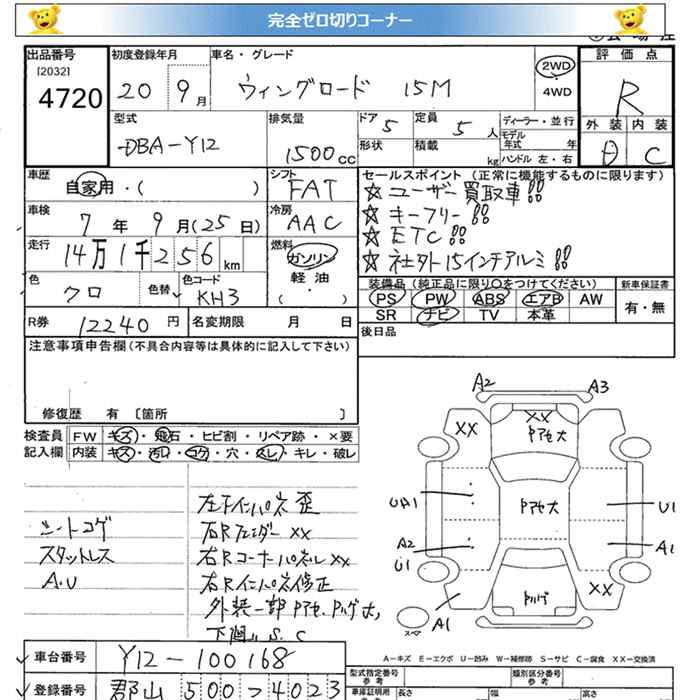 完全ゼロ切りコーナー
出品番号 初度登録年月 車名・グレード 評価点
[2032]
4720 20 9月 ウィングロード 15M 2WD R
4WD
型式 排気量 ドア 定員 ディーラー・並行 外装 内装
DBA-Y12 1500cc 5 5人 モデル年式 年
形状 積載 kg ハンドル 左・右 C
車歴 シフト セールスポイント(正常に機能するものに限ります)
自家用・( ) FAT ☆ユーザー買取車!!
車検 冷房 ☆キーフリー!!
7年 9月(25日) AAC ☆ETC!!
走行 燃料 ☆社外15インチアルミ!!
14万1千256km ガソリン
軽油
( ・ )
色 色替 色コード 装備品(純正品に限り○をつけてください) 新車保証書
クロ KH3 PS PW ABS エアB AW 有・無
SR ナビ TV 本革
R券 12240円 名変期限 月 日 後日品
注意事項申告欄(不具合内容等は具体的に記入して下さい)
修復歴 有 〔箇所 〕
検査員 FW キズ・飛石・ヒビ割・リペア跡・×要
記入欄 内装 キズ・汚レ・コゲ・穴・スレ・キレ・破レ
シートコゲ
スタットレス
A.U
左フインパネ歪
右Rフェンダーxx
右Rコーナーパネルxx
右Rインパネ修正
外装一部Pアセ,Pハゲ大,
下廻りS.C
A2 A3
XX XX
Pアセ大
UA1 Pアセ大 U1
A2 A1
U1
Pハゲ XX
A1
スペア
A-キズ E-エクボ U-凹み W-補修跡 S-サビ C-腐食 XX-交換済
車台番号 Y12-100168
登録番号 郡山 500 ス 4023
型式指定番号 参考 類別区分番号 参考
車庫証明用 長さ 幅 高さ